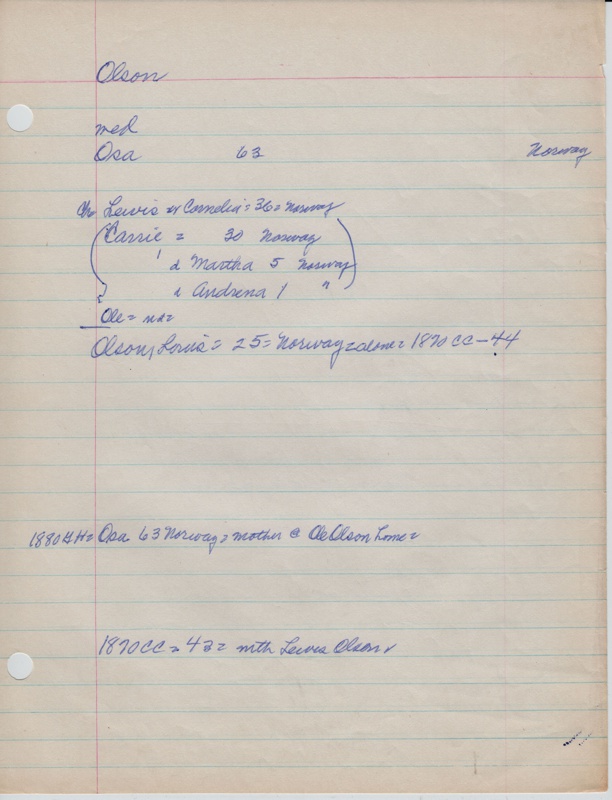 Olson
med
Osa 63 Norway
ch Lewis or Cornelia = 36 = Norway
(Carrie = 30 Norway)
d Martha 5 Norway
d Andrena 1 "
Ole = na =
Olson, Lewis = 25 = Norway = alone = 1870 CC - 44
1880 GH = Osa 63 Norway = mother @ Ole Olson home =
1870 CC = 42 = mth Lewis Olson